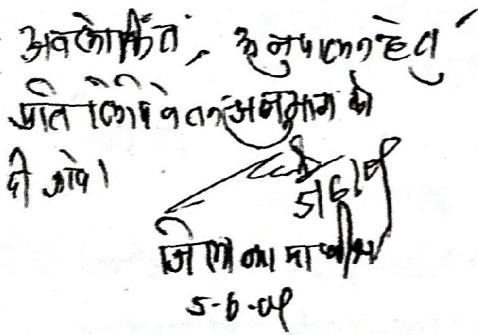 अवलोकित, अनुपालन हेतु
प्रतिलिपि वेतन अनुभाग को
दी जाये।
5/6/09
5-6-09